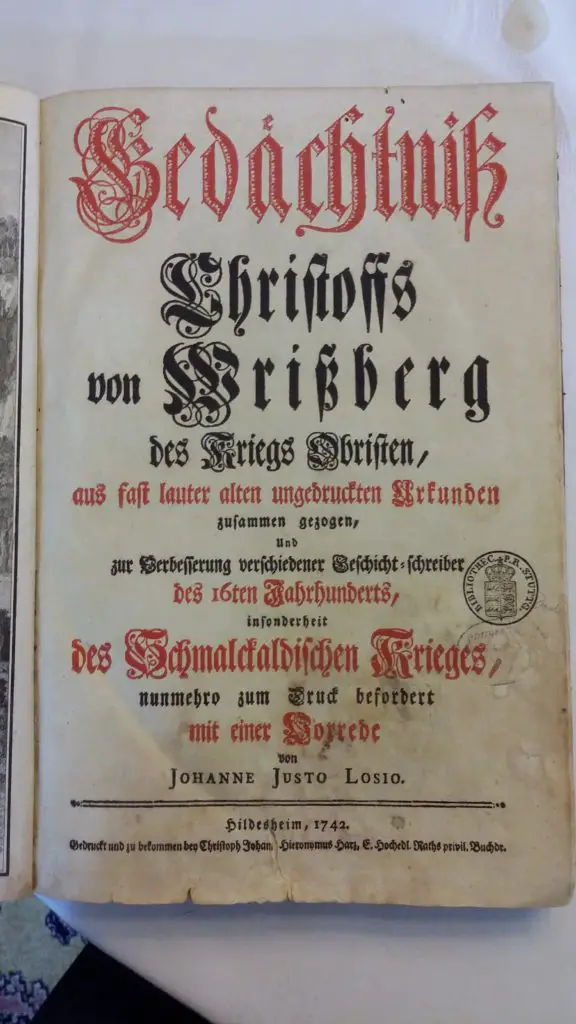 Gedächtniß
Christoffs
von Wrißberg
des Kriegs Obristen,
aus fast lauter alten ungedruckten Urkunden
zusammen gezogen,
Und
zur Verbesserung verschiedener Geschicht-schreiber
des 16ten Jahrhunderts,
insonderheit
des Schmalckaldischen Krieges,
nunmehro zum Druck befordert
mit einer Vorrede
von
JOHANNE JUSTO LOSIO.
Hildesheim, 1742.
Gedruckt und zu bekommen bey Christoph Johan. Hieronymus Hartz, E. Hochedl. Raths privil. Buchdr.
BIBLIOTHEC. P. R. STUTTG.